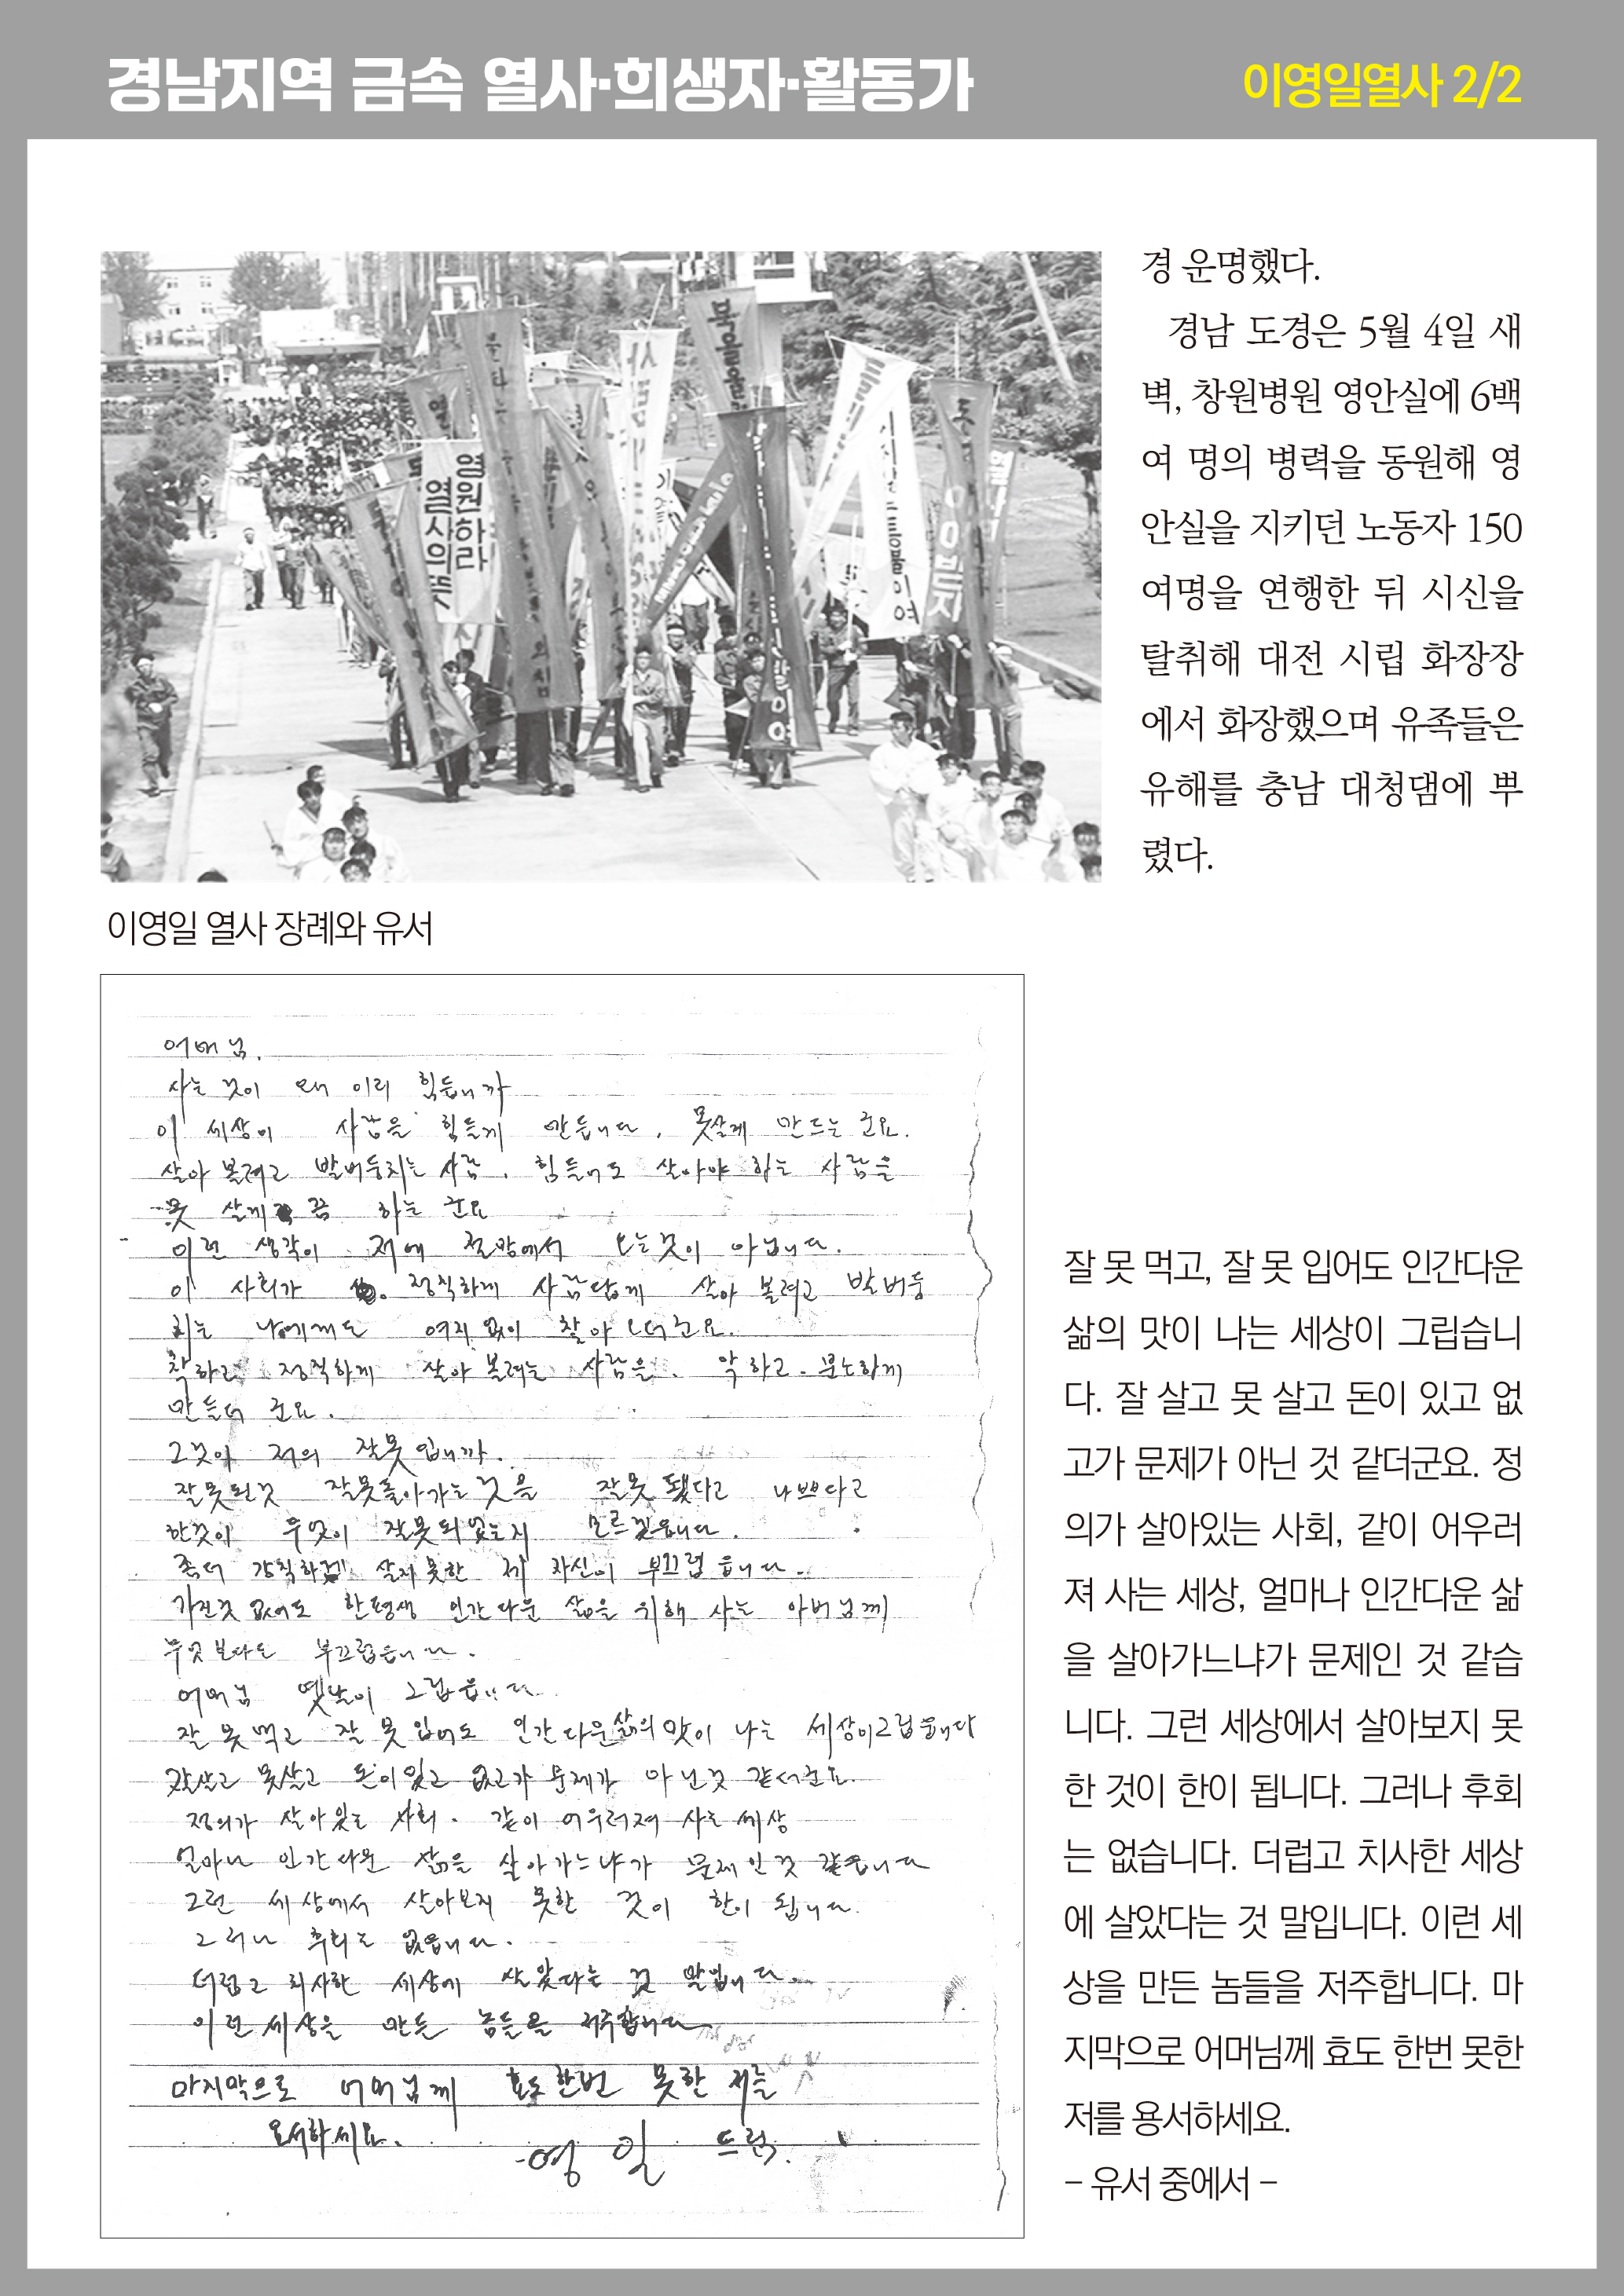 경남지역 금속 열사·희생자·활동가
이영일열사 2/2
영원하라
열사의 뜻
경 운명했다.
경남 도경은 5월 4일 새
벽, 창원병원 영안실에 6백
여 명의 병력을 동원해 영
안실을 지키던 노동자 150
여명을 연행한 뒤 시신을
탈취해 대전 시립 화장장
에서 화장했으며 유족들은
유해를 충남 대청댐에 뿌
렸다.
이영일 열사 장례와 유서
어머님.
사는 것이 왜 이리 힘듭니까
이 세상이 사람을 힘들게 만듭니다. 못살게 만드는 군요.
살아 볼려고 발버둥치는 사람. 힘들어도 살아야 하는 사람을
못 살게 끔 하는 군요
이런 생각이 저에 절망에서 오는것이 아닙니다.
이 사회가 정직하게 사람답게 살아 볼려고 발버둥
치는 나에게도 여지 없이 찾아 오더군요.
착하고 정직하게 살아 볼려는 사람을. 악하고. 분노하게
만들더 군요.
그것이 저의 잘못 입니까.
잘못된것 잘못돌아가는 것을 잘못 됐다고 나쁘다고
한것이 무엇이 잘못되었는지 모르겠읍니다.
좀더 강직하게 살지못한 제 자신이 부끄럽 읍니다.
가진것 없어도 한평생 인간다운 삶을 위해 사는 아버님께
무엇보다도 부끄럽읍니다.
어머님 옛날이 그립읍니다
잘 못 먹고 잘 못 입어도 인간다운 삶의 맛이 나는 세상이그립읍니다
잘살고 못살고 돈이있고 없고가 문제가 아닌것 같더군요.
정의가 살아있는 사회. 같이 어우러져 사는 세상
얼마나 인간다운 삶을 살아가느냐가 문제인것 같읍니다
그런 세상에서 살아보지 못한 것이 한이 됩니다.
그러나 후회는 없읍니다.
더럽고 치사한 세상에 살았다는 것 말입니다.
이런 세상을 만든 놈들을 저주합니다
마지막으로 어머님께 효도 한번 못한 저를
용서하세요.
영일 드림.
잘 못 먹고, 잘 못 입어도 인간다운
삶의 맛이 나는 세상이 그립습니
다. 잘 살고 못 살고 돈이 있고 없
고가 문제가 아닌 것 같더군요. 정
의가 살아있는 사회, 같이 어우러
져 사는 세상, 얼마나 인간다운 삶
을 살아가느냐가 문제인 것 같습
니다. 그런 세상에서 살아보지 못
한 것이 한이 됩니다. 그러나 후회
는 없습니다. 더럽고 치사한 세상
에 살았다는 것 말입니다. 이런 세
상을 만든 놈들을 저주합니다. 마
지막으로 어머님께 효도 한번 못한
저를 용서하세요.
– 유서 중에서 –